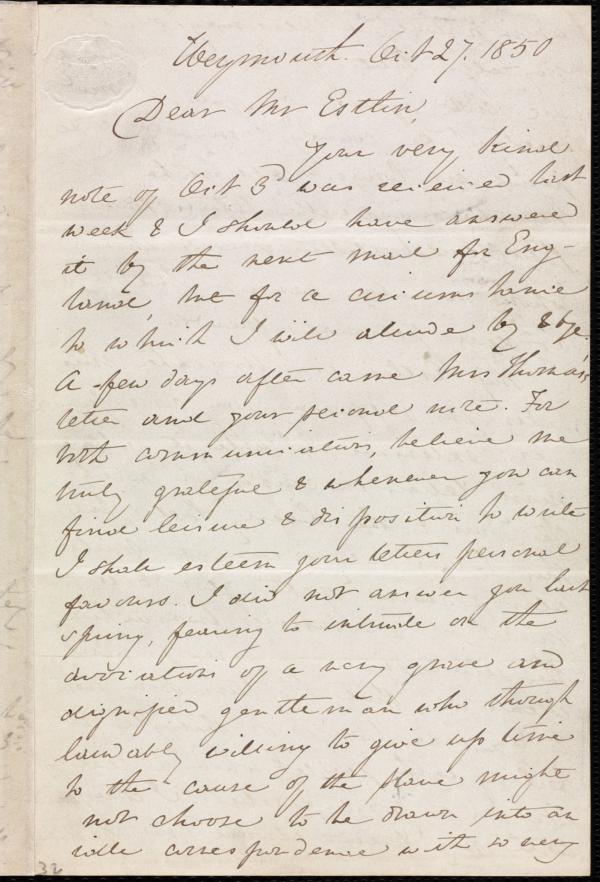 Weymouth. Oct 27. 1850
Dear Mr Estlin,
Your very kind
note of Oct 3d was received last
week & I should have answered
it by the next mail for Eng-
land, but for a circumstance
to which I will allude by & bye.
A few days after came Mrs Thomas's
letter and your second note. For
both communications, believe me
truly grateful & whenever you can
find leisure & disposition to write
I shall esteem your letters personal
favours. I did not answer you last
spring, fearing to intrude on the
avocations of a very grave and
dignified gentleman who though
laudably willing to give up time
to the cause of the slave might
not choose to be drawn into an
idle correspondence with so very
32